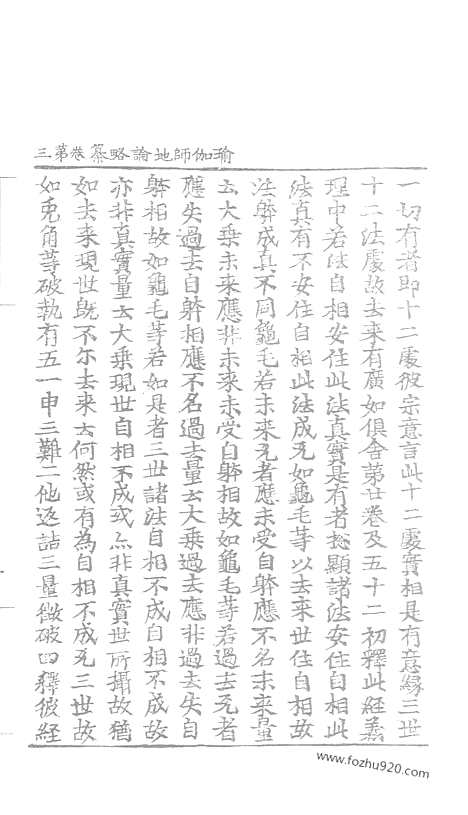 瑜伽師地論略纂卷第三
一切有者即十二處彼宗意言此十二處實相是有意緣三世
十二法處故去来有廣如俱舍第廿卷及五十二初釋此經義
理中若法自相安住此法真實是有者揔顯諸法安住自相此
法真有不安住自相此法成无如龜毛等以去来世住自相故
法躰成真不同龜毛若未来无者應未受自躰應不名未来量
云大乗未来應非未来未受自躰相故如龜毛等若過去无者
應失過去自躰相應不名過去量云大乗過去應非過去失自
躰相故如龜毛等若如是者三世諸法自相不成自相不成故
亦非真實量云大乗現世自相不成或亦非真實世所攝故猶
如去来現世既不尓去来云何然或有為自相不成无三世故
如兎角等破執有五一申三難二他返詰三量徴破四釋彼經
www.fozhu920.com